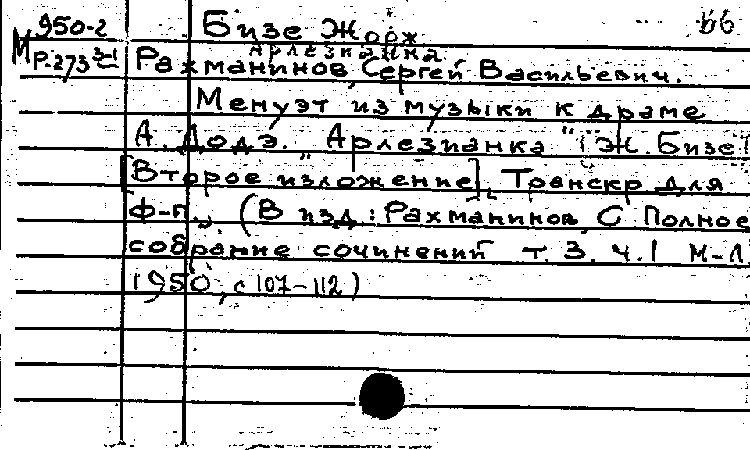 950-2 Бизе Жорж 66
Арлезианка
М Р-273 Рахманинов, Сергей Васильевич.
Менуэт из музыки к драме
А. Додэ. "Арлезианка" (Ж. Бизе)
[Второе изложение]. Транскр. для
ф-п. (В изд.: Рахманинов, С. Полное
собрание сочинений т. 3. ч. I М-Л.
1950, с 107-112)